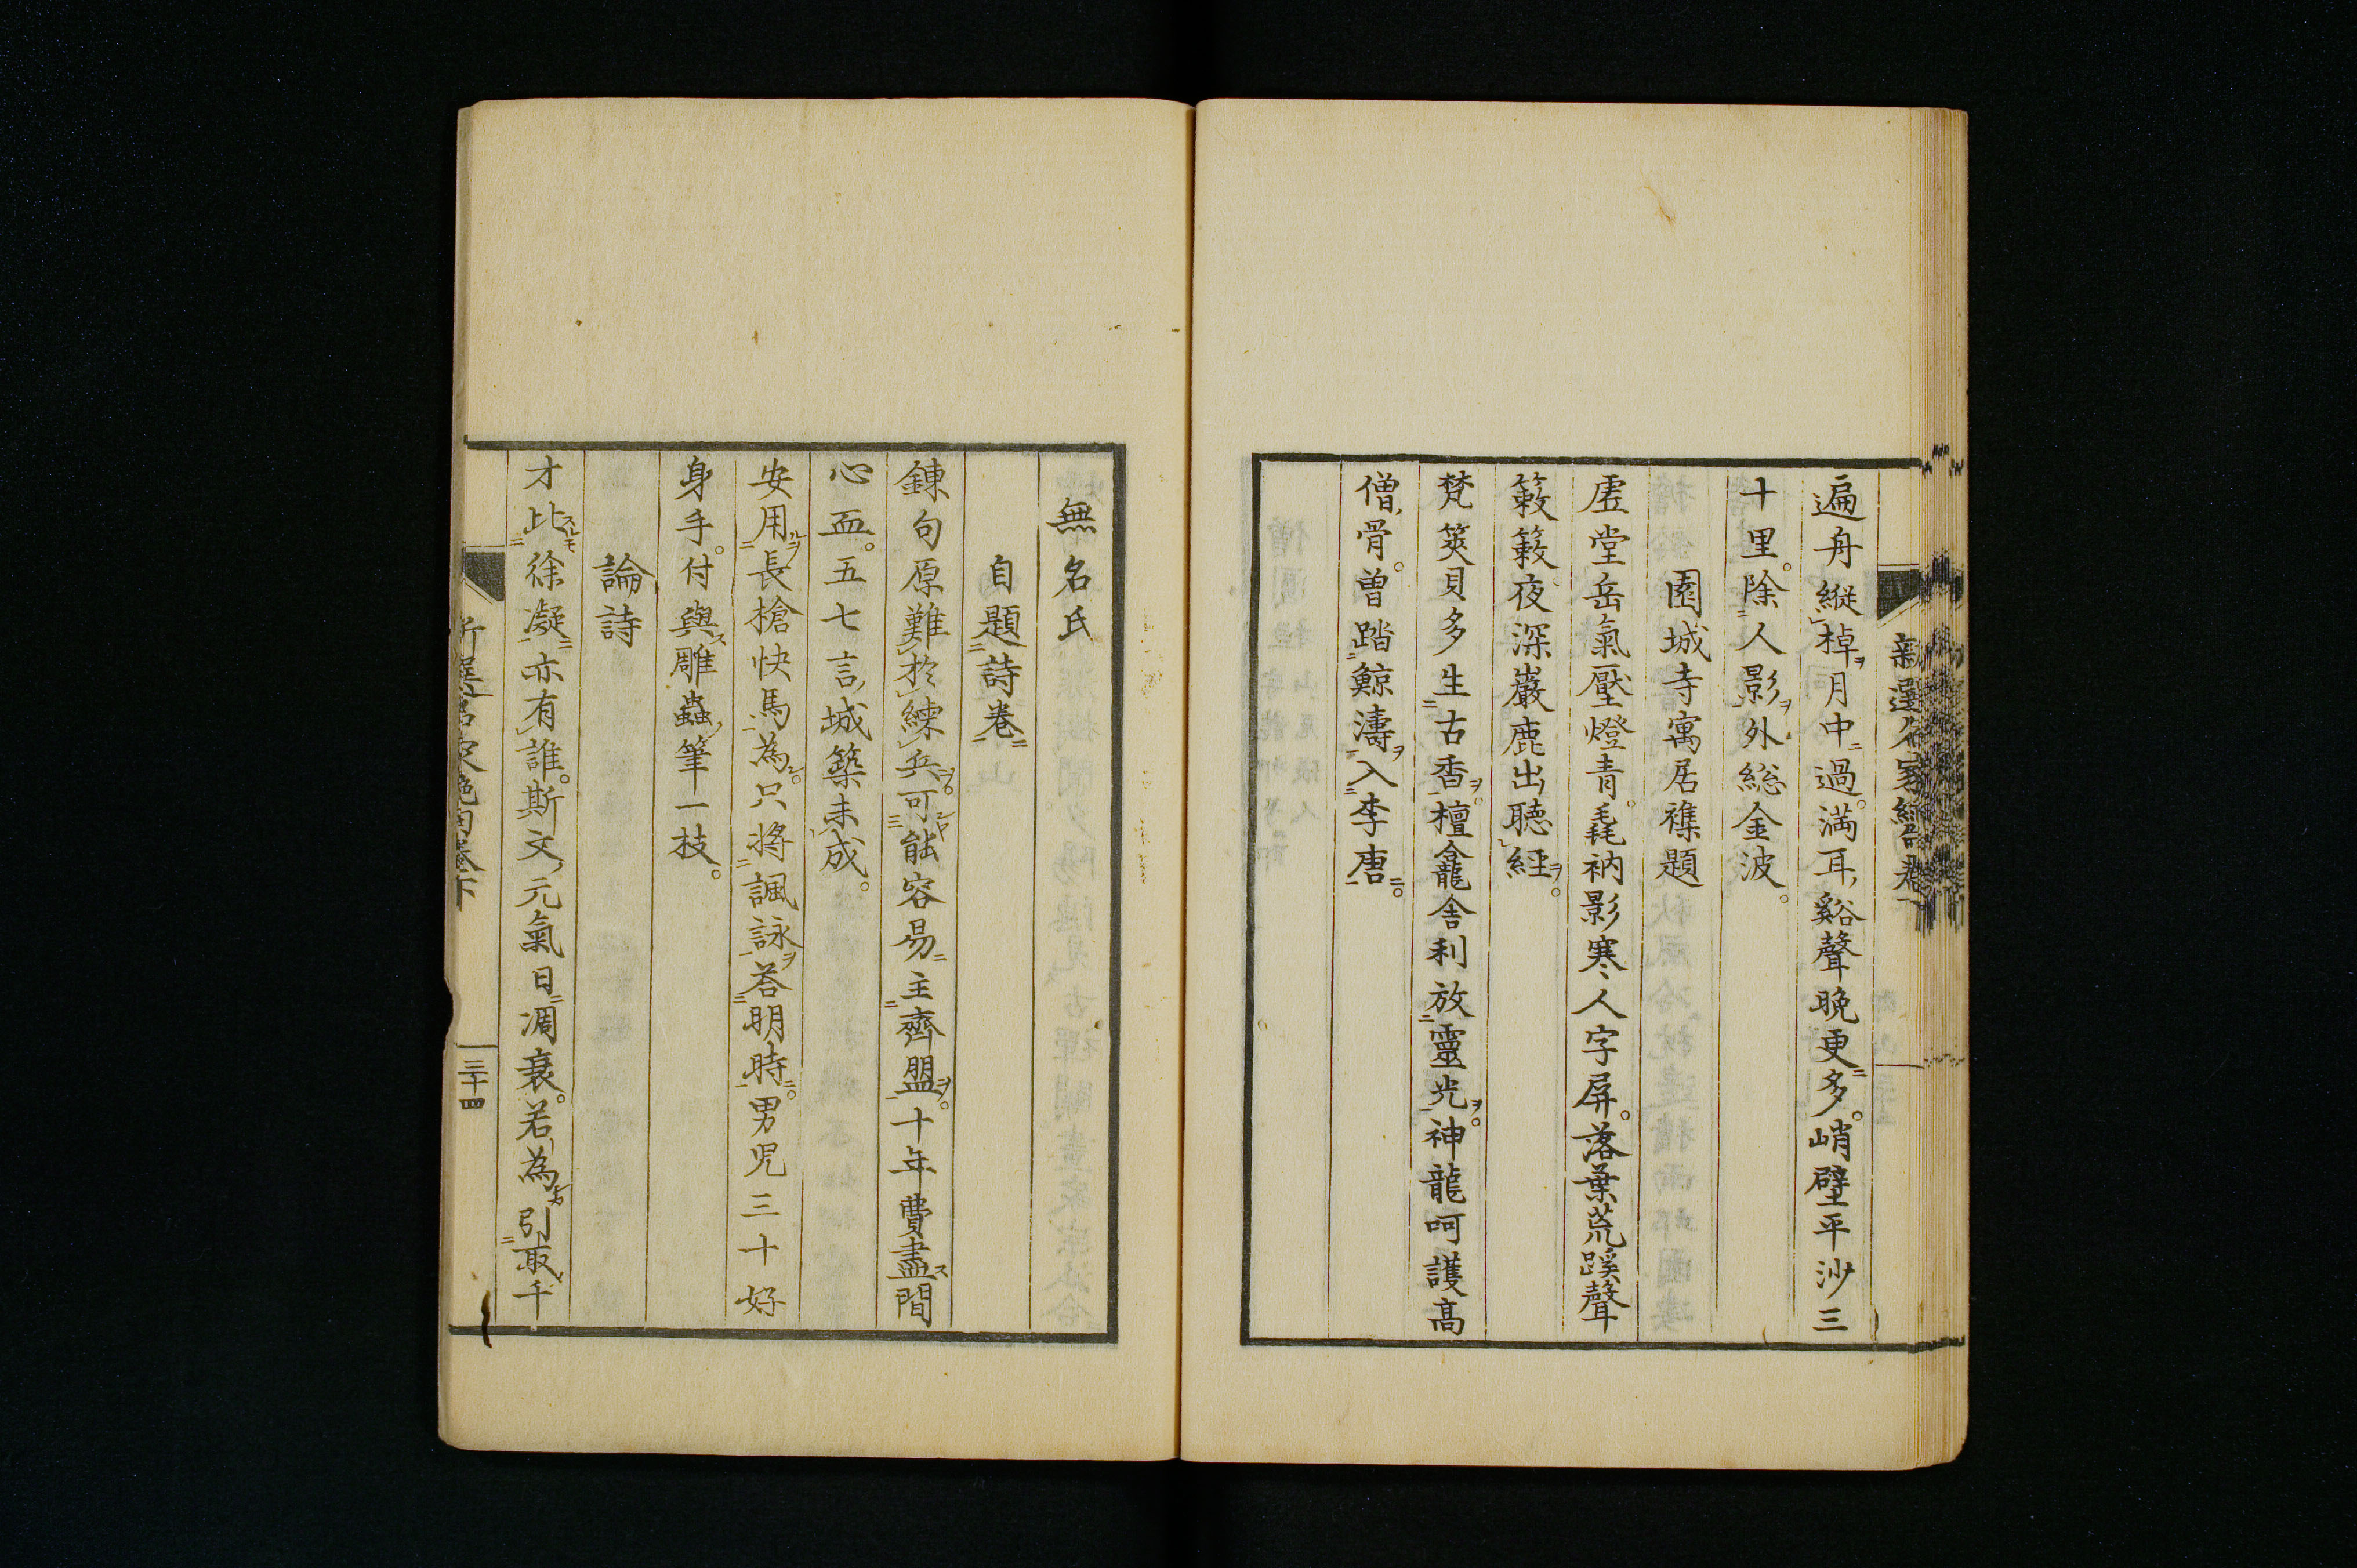 遍舟縦棹ヲ月中過満耳谿聲晩更多峭壁平沙三
十里除人影ヲ外総金波
園城寺寓居襍題
虗堂岳氣壓燈青毳衲影寒人字屏落葉荒蹊聲
簌簌夜深巖鹿出聽經ヲ
梵筴貝多生古香ヲ檀龕舎利放靈光ヲ神龍呵護高
僧骨曽踏鯨濤ヲ入李唐
無名氏
自題詩卷
錬句原難於練兵ヲ可能容易主齊盟ヲ十年費盡ス間
心血五七言城築未成
安用ルヲ長槍快馬為只將諷詠ヲ荅明時男児三十好
身手付與ス雕蟲筆一枝
論詩
才比スルモ徐凝亦有誰斯文元氣日凋衰若為引取千
新選名家絶句巻下
三十四